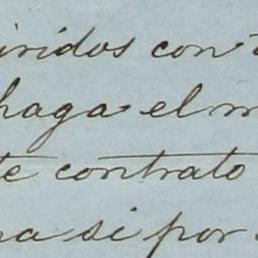 iridos con
haga el m
te contrato
na si por